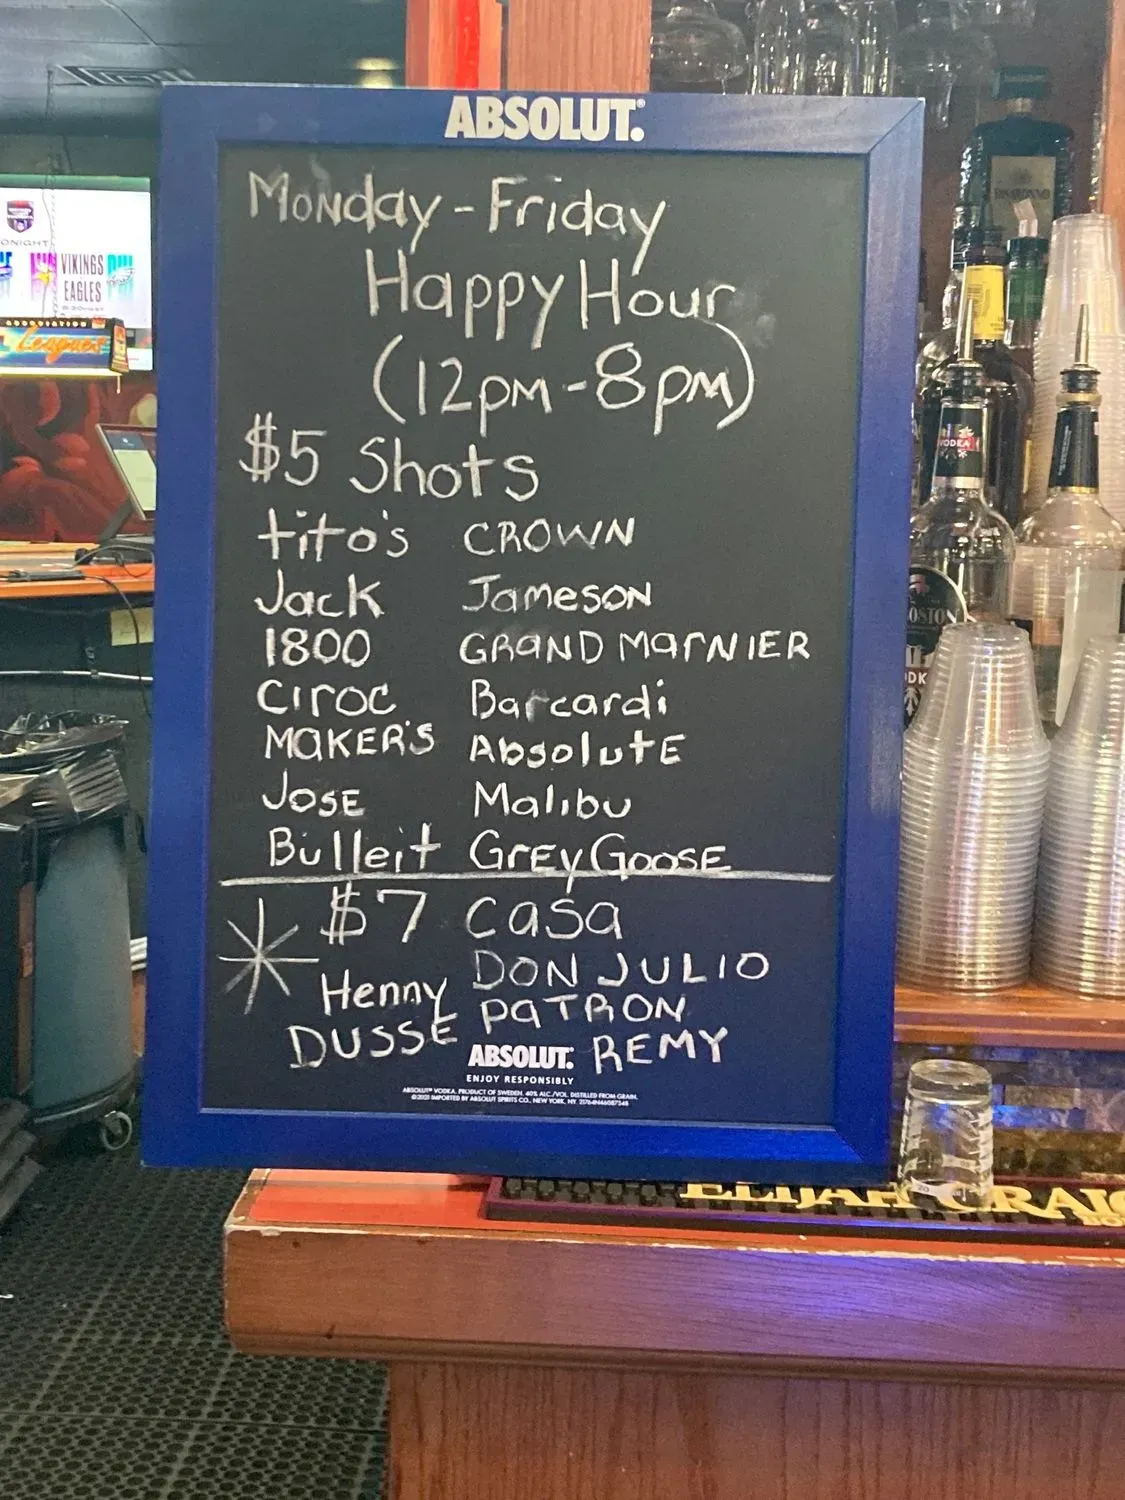 ABSOLUT.
Monday - Friday
Happy Hour
(12pm - 8pm)
$5 Shots
tito's CROWN
Jack Jameson
1800 GRAND MARNIER
CIROC Barcardi
MAKER'S AbsolutE
JOSE Malibu
Bulleit GREY GOOSE
$7 Casa
Henny DON JULIO
DUSSE PATRON
REMY
ABSOLUT.
ENJOY RESPONSIBLY
ABSOLUT® VODKA. PRODUCT OF SWEDEN. 40% ALC./VOL. DISTILLED FROM GRAIN.
IMPORTED BY ABSOLUT SPIRITS CO., NEW YORK, NY.
ONIGHT
VIKINGS
EAGLES
Leagues
VODKA
OSTON
ELIJAH CRAIG